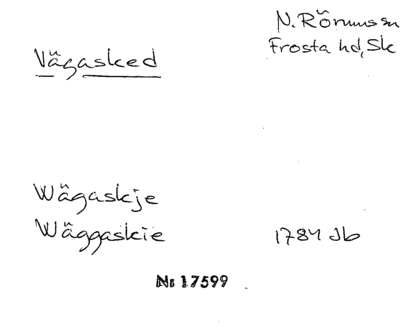 N. Rörumssn
Frosta hd, Sk
Vägasked
Wägaskje
Wäggaskie 1784 Jb
Nr 17599